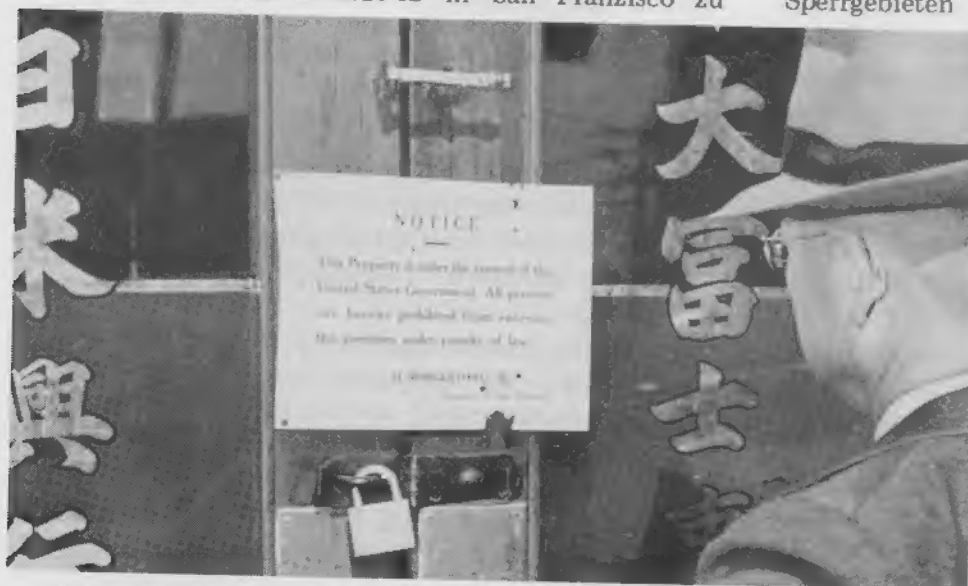 in San Franzisco zu Sperrgebieten
日米興
NOTICE
This Property is under the control of the
United States Government. All persons
are hereby prohibited from entering
this premises under penalty of law.
大富士